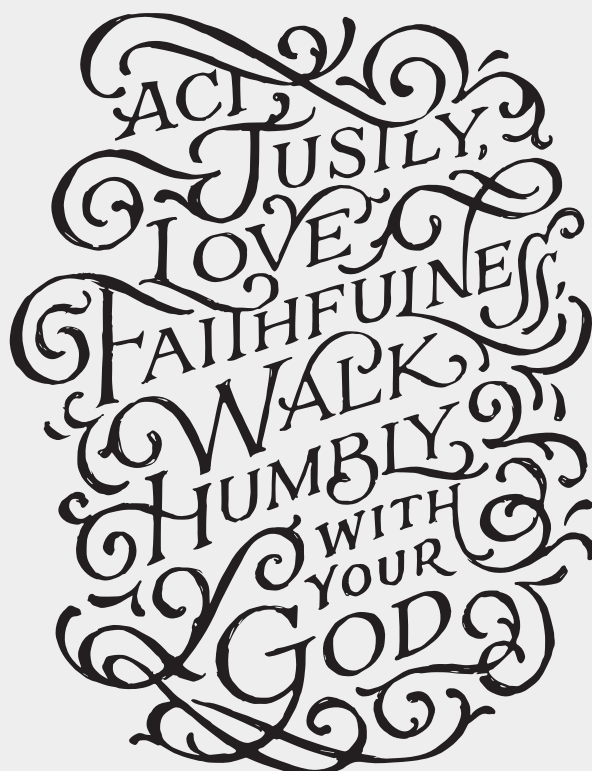 ACT
JUSTLY,
LOVE
FAITHFULNESS,
WALK
HUMBLY
WITH
YOUR
GOD